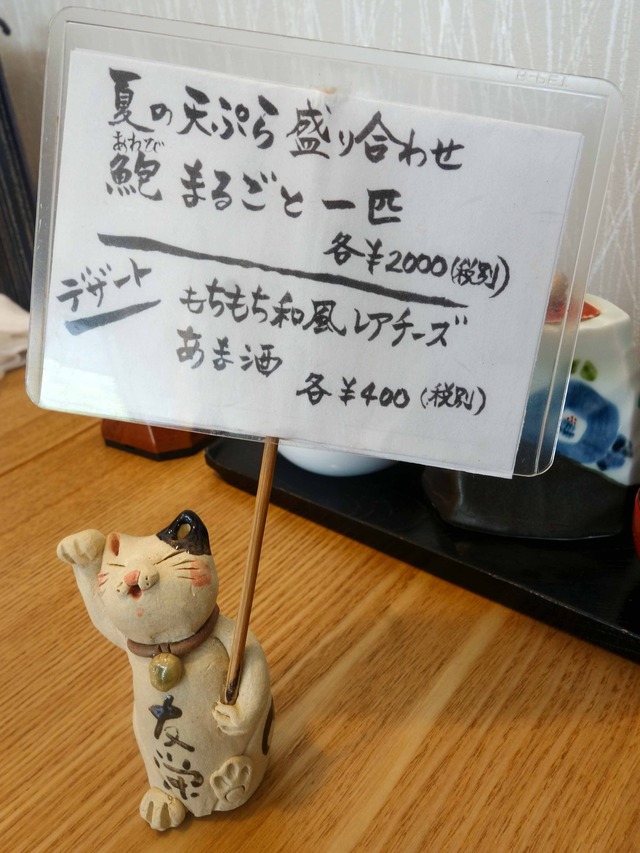 夏の天ぷら盛り合わせ
あわび
鮑 まるごと一匹
各¥2000(税別)
デザート
もちもち和風レアチーズ
あま酒
各¥400(税別)
友栄